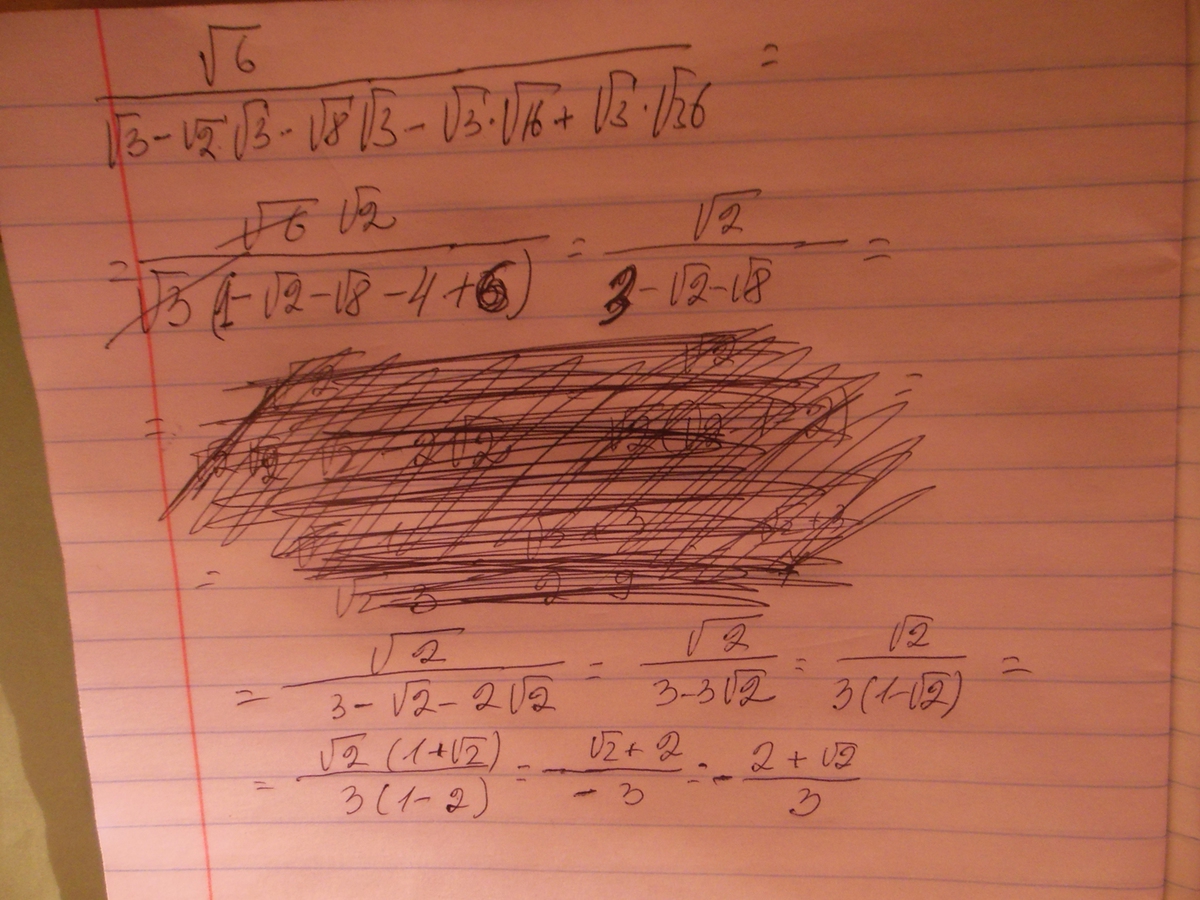 √6 / (√3 - √2 √3 - √8 √3 - √3 · √16 + √3 · √36) =
= √6 √2 / (√3 (1 - √2 - √8 - 4 + 6)) = √2 / (3 - √2 - √8) =
= √2 / (3 - √2 - 2√2) = √2 / (3 - 3√2) = √2 / (3(1-√2)) =
= √2 (1+√2) / (3(1-2)) = √2 + 2 / -3 = - (2 + √2) / 3